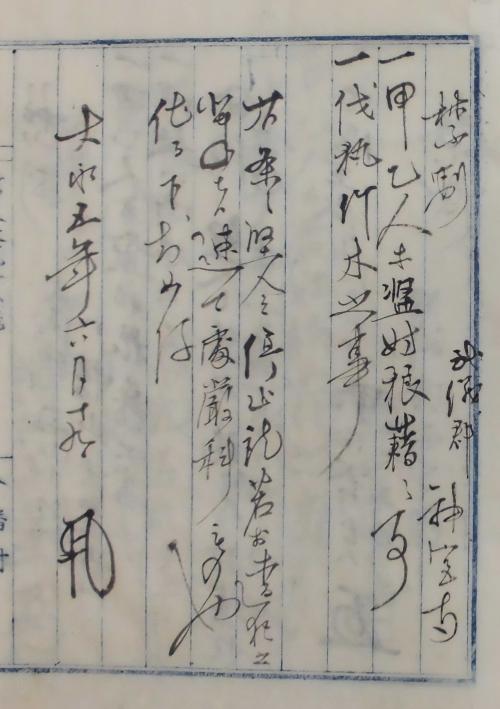 禁制 武儀郡
一甲乙人等濫妨狼藉之事
一伐執竹木之事
右条々堅令停止訖若於違犯之
輩者速可処厳科者也
仍下知如件
大永五年六月十九